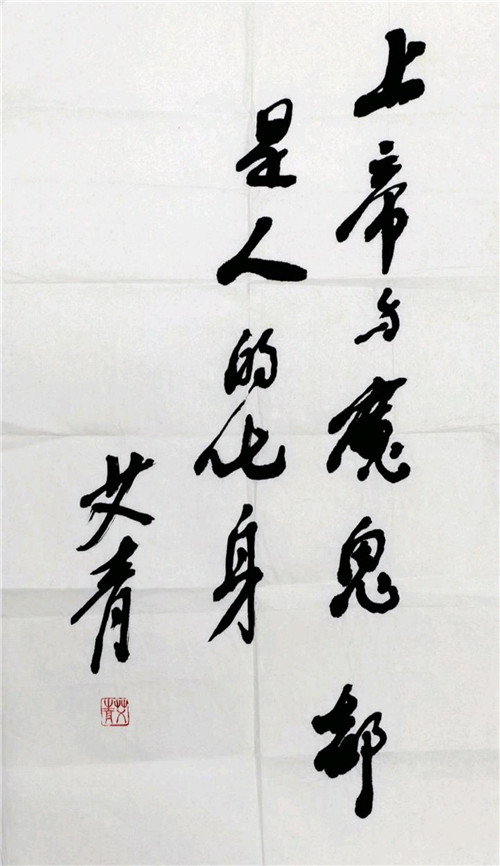 上帝与魔鬼都
是人的化身
艾青
艾青